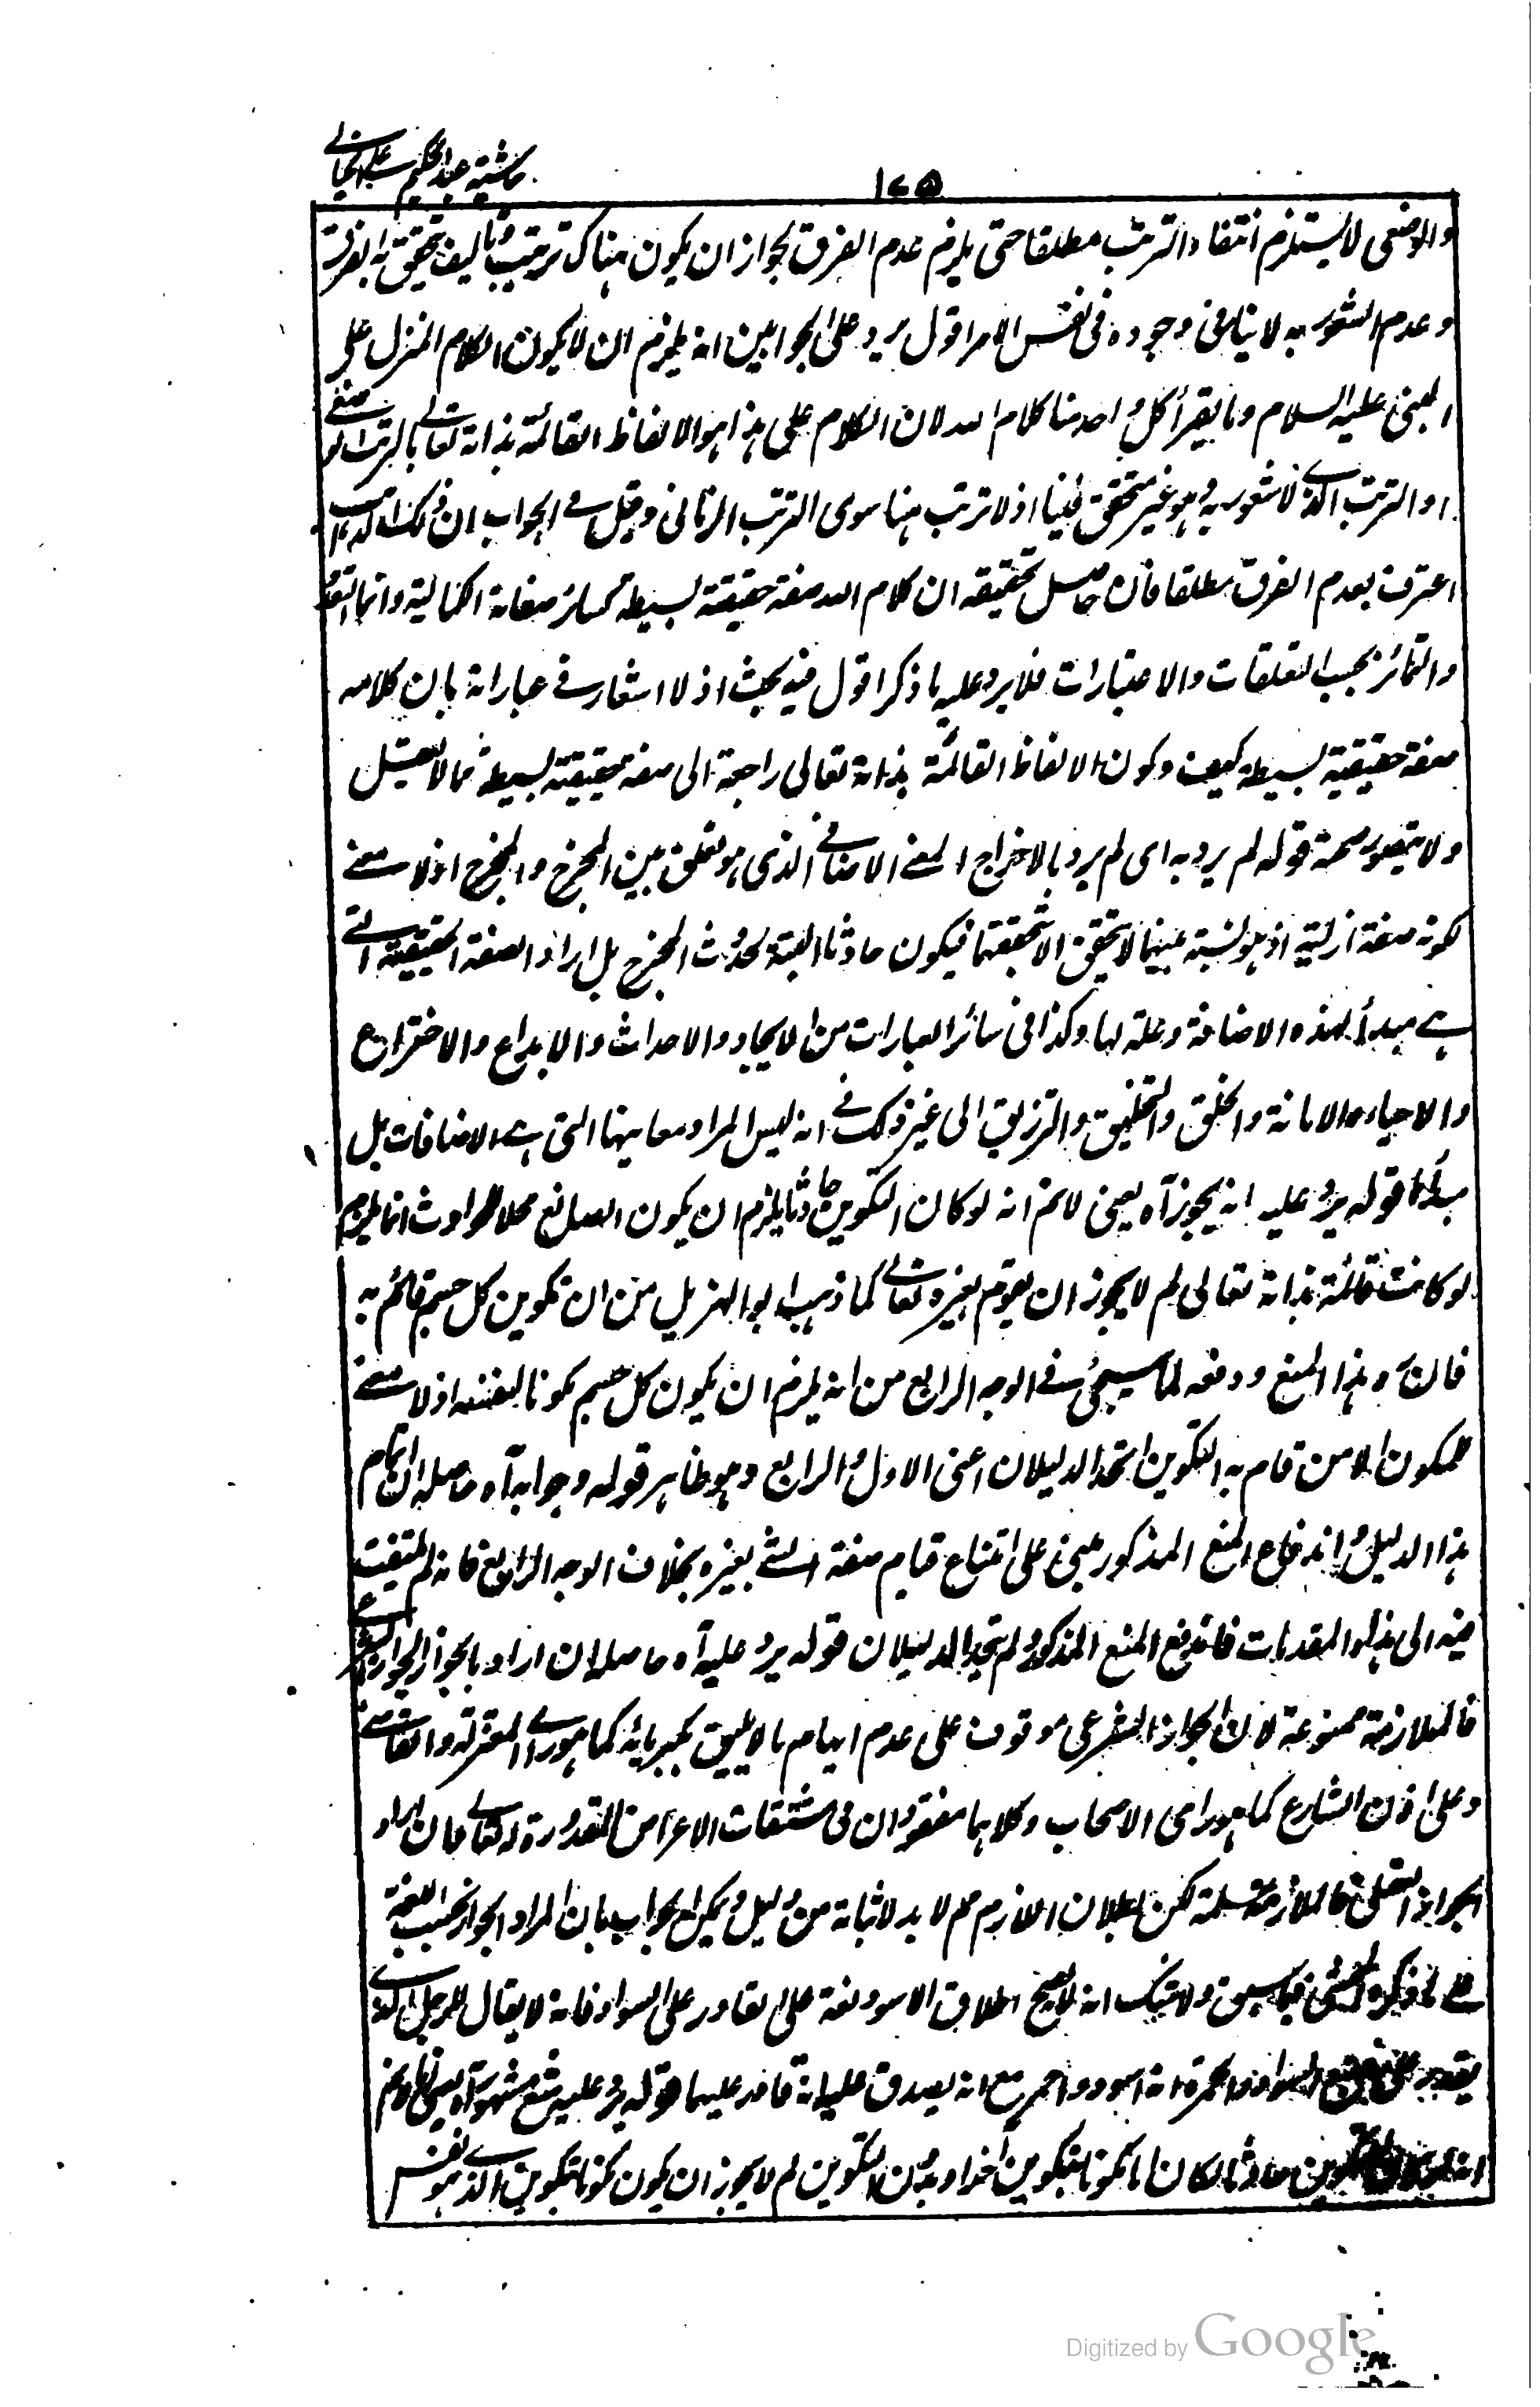 حاشیة عبد الحکیم علی الخیالی
١٧٥
والوضعی لا یستلزم انتفاء الترتب مطلقا حتی یلزم عدم الفرق لجواز ان یکون هناک ترتیب وتالیف یتحقق به الفرق
وعدم الشعور به لا ینافی وجوده فی نفس الامر اقول یرد علی الجوابین انه یلزم ان لا یکون الکلام المنزل علی
النبی علیه السلام وما یقرأ کل واحد منا کلام الله لان الکلام علی هذا هو الالفاظ القائمة بذاته تعالی بالترتب الوضعی
او الترتب الذی لا شعور به وهو غیر متحقق فینا اذ لا ترتب هنا سوی الترتب الزمانی وقیل فی الجواب ان ذلک القائل
اعترف بعدم الفرق مطلقا فان حاصل تحقیقه ان کلام الله صفة حقیقیة بسیطة کسائر صفاته الکمالیة وانما التعدد
والتمائز بحسب التعلقات والاعتبارات فلا یرد علیه ما ذکر اقول فیه بحث اذ لا اشعار فی عباراته بان کلامه
صفة حقیقیة بسیطة کیف وکون الالفاظ القائمة بذاته تعالی راجعة الی صفة حقیقیة بسیطة مما لا یعقل
ولا یتصور صحة قوله لم یرد به ای لم یرد بالاخراج المعنی الاضافی الذی هو تعلق بین المخرج والمخرج اذ لا معنی
لکونه صفة ازلیة اذ هو نسبة بینهما لا یتحقق الا بتحققهما فیکون حادثا البتة لحدوث المخرج بل اراد الصفة الحقیقیة التی
هی مبدأ لهذه الاضافة وعلة لها وکذا فی سائر العبارات من الایجاد والاحداث والابداع والاختراع
والاحیاء والاماتة والخلق والتخلیق والترزیق الی غیر ذلک فی انه لیس المراد معانیها التی هی الاضافات بل
مبدأها قوله یرد علیه انه یجوز آه یعنی لا نم انه لو کان التکوین حادثا یلزم ان یکون الصانع محلا للحوادث انما یلزم
لو کانت قائمة بذاته تعالی لم لا یجوز ان یقوم بغیره تعالی کما ذهب ابو الهزیل من ان تکوین کل جسم قائم به
فان رد هذا المنع ودفعه لما سیجئ فی الوجه الرابع من انه یلزم ان یکون کل جسم مکونا لنفسه اذ لا معنی
للمکون الا من قام به التکوین اتحد الدلیلان اعنی الاول والرابع وهو ظاهر قوله وجوابه آه حاصله ان اتمام
هذا الدلیل واندفاع المنع المذکور مبنی علی امتناع قیام صفة الشئ بغیره بخلاف الوجه الرابع فانه لم یلتفت
فیه الی هذه المقدمات فاندفع المنع المذکور ولم یتحد الدلیلان قوله یرد علیه آه حاصله ان اراد بالجواز الجواز الشرعی
فالملازمة ممنوعة لان الجواز الشرعی موقوف علی عدم ایهام ما لا یلیق بکبریائه کما هو رای المعتزلة والقاضی
وعلی اذن الشارع کما هو رای الاصحاب وکلاهما مفقودان فی مشتقات الاعراض المقدورة له تعالی فان اراد
الجواز العقلی فالملازمة مسلمة لکن بطلان اللازم مم لا بد لاثباته من دلیل ویمکن الجواب بان المراد الجواز بحسب اللغة
علی ما ذکره المحشی فیما سبق ولا شک انه لا یصح اطلاق الاسود لغة علی القادر علی السواد فانه لا یقال للرجل الذی
یقدر علی صبغ السواد والحمرة انه اسود واحمر مع انه یصدق علیه انه قادر علیهما قوله یرد علیه منع مشهور آه یعنی لا نم
انه لو کان التکوین حادثا لکان اما مکونا بتکوین آخر او بدون التکوین لم لا یجوز ان یکون مکونا بتکوین الذی هو نفس
Digitized by Google